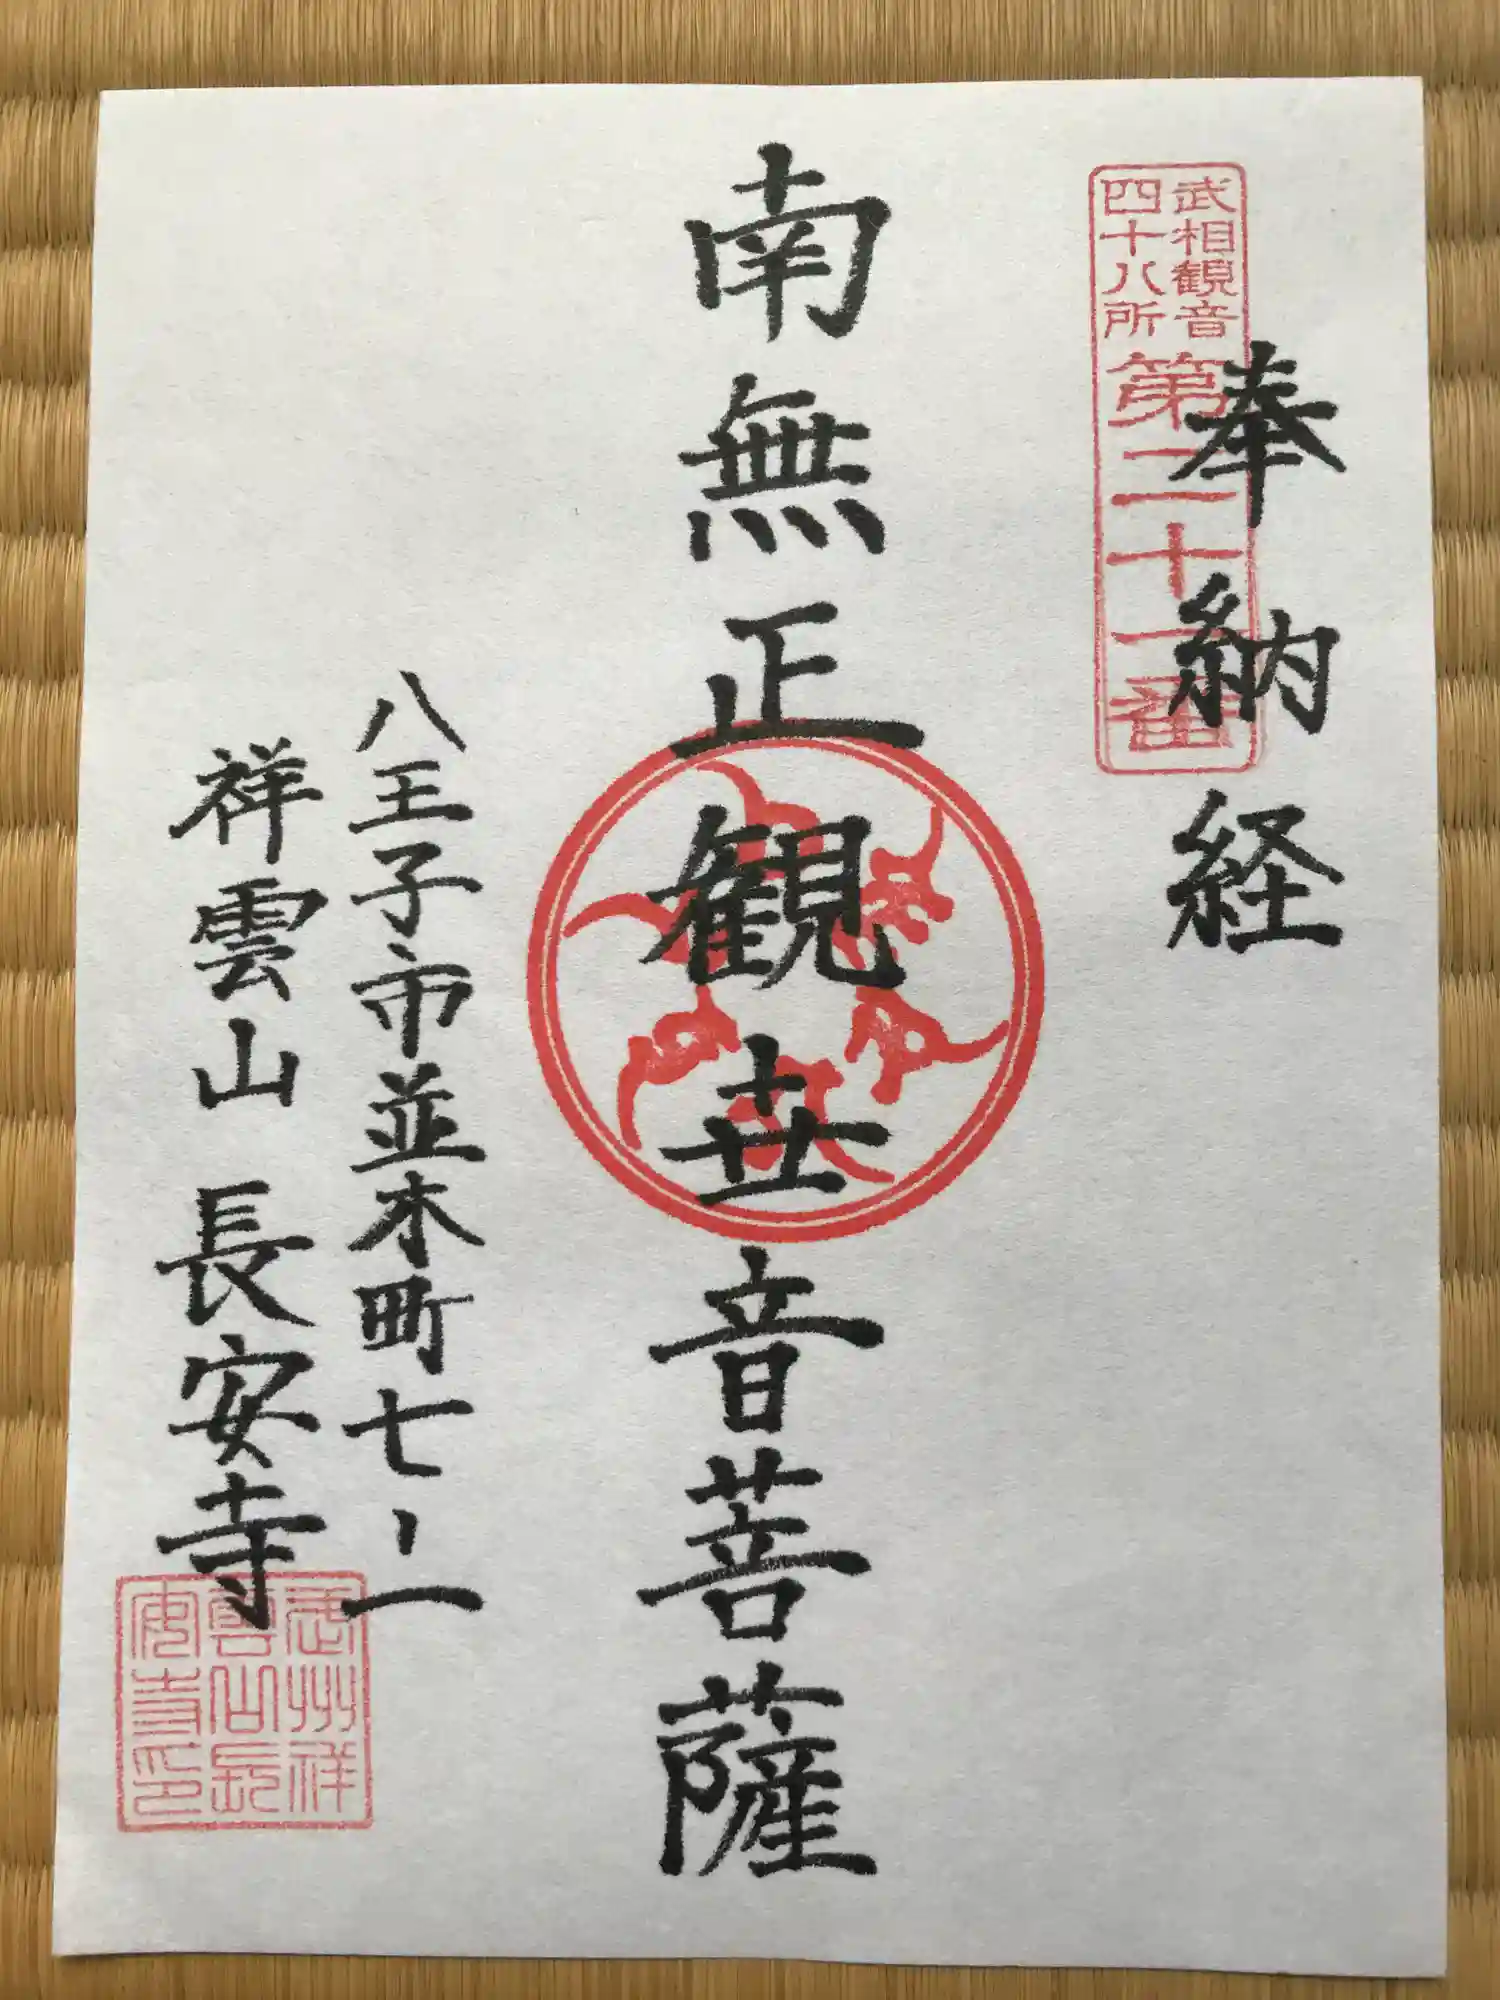 武相観音
四十八所
第二十一番
奉納経
南無正観卋音菩薩
八王子市並木町七ー一
祥雲山 長安寺
武州祥
雲山長
安寺印